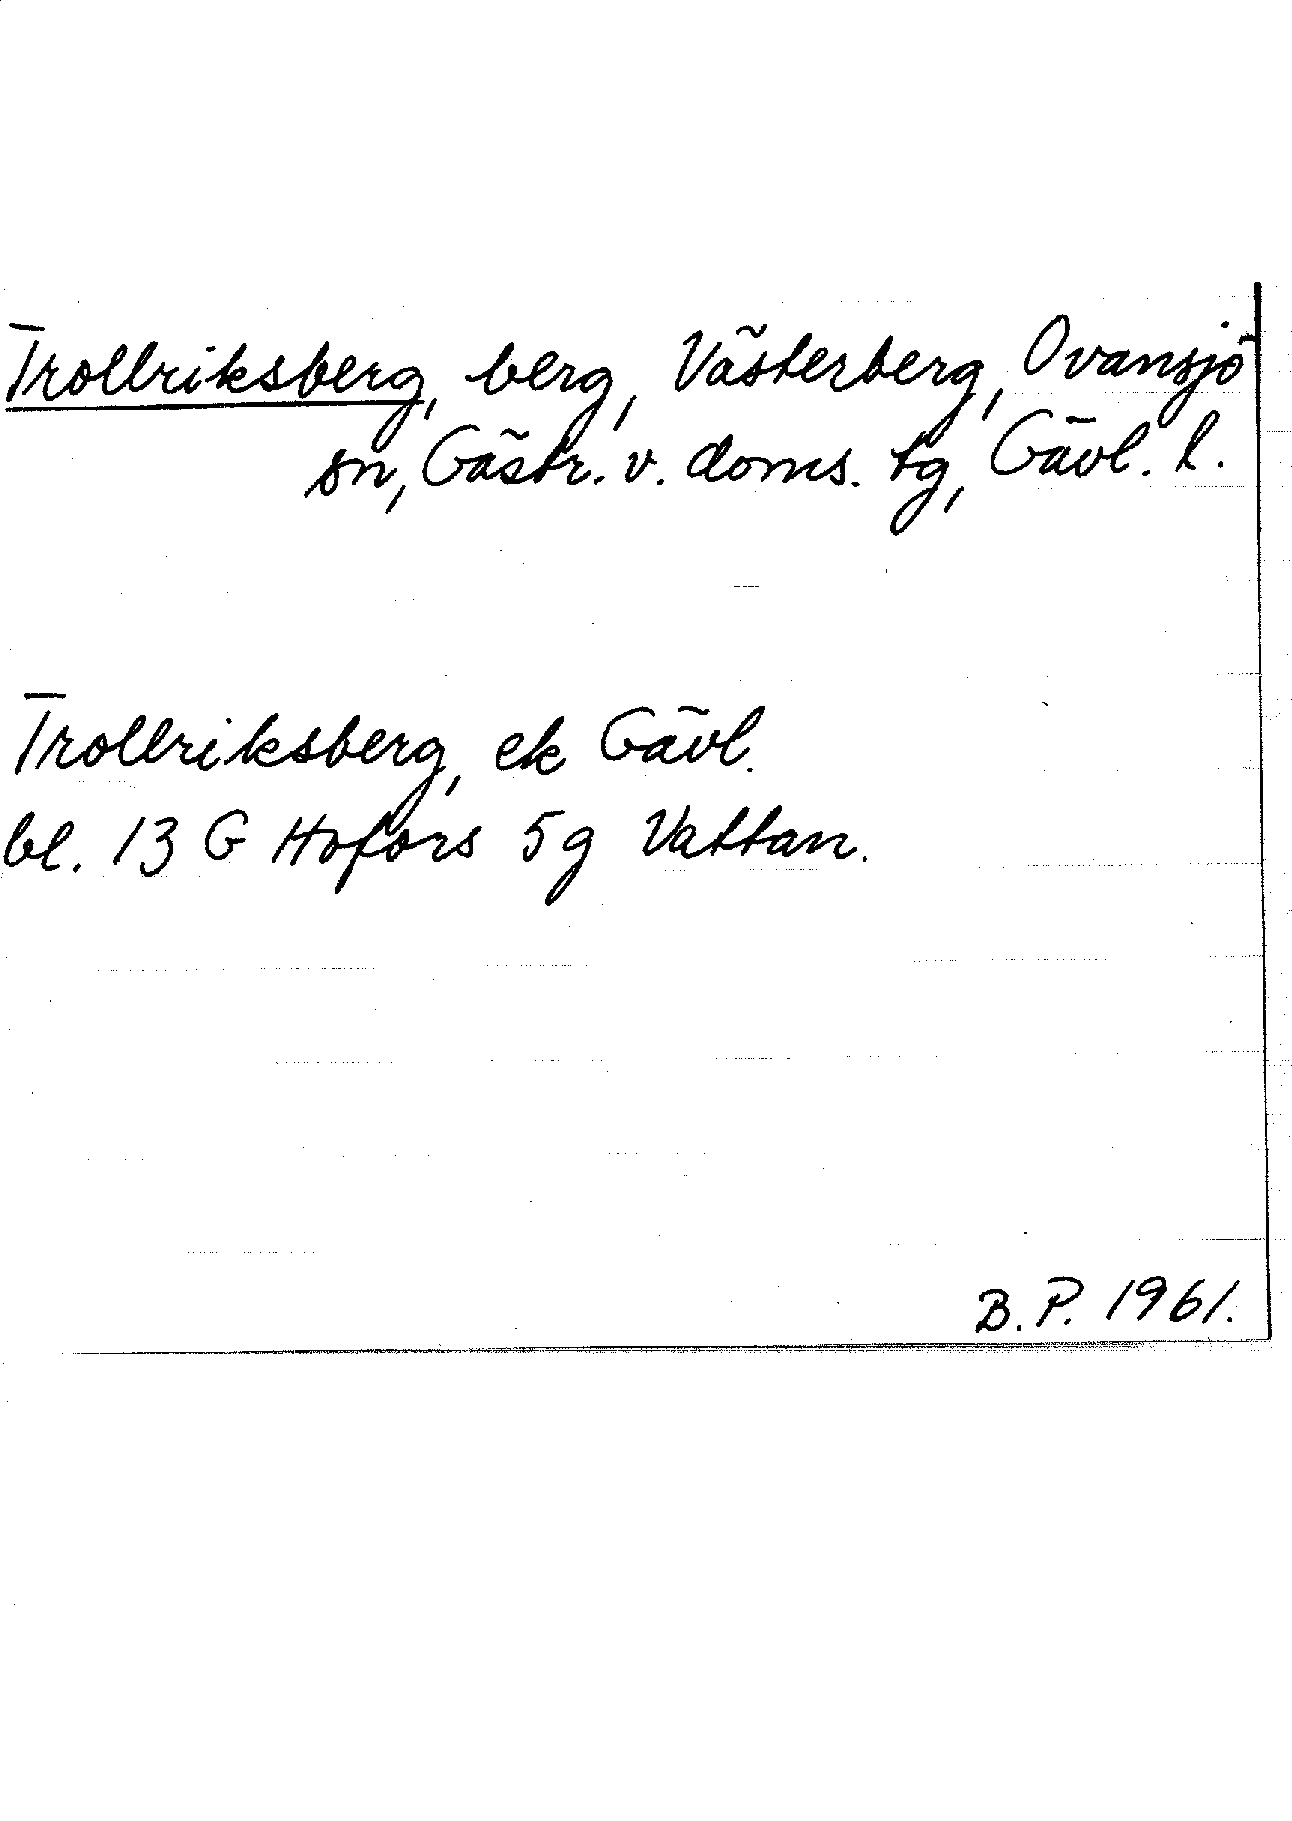 Trollriksberg, berg, Västerberg, Ovansjö
sn, Gästr. v. doms. tg, Gävl. l.
Trollriksberg, ek Gävl.
bl. 13 G Hofors 5g Vattan.
B. P. 1961.